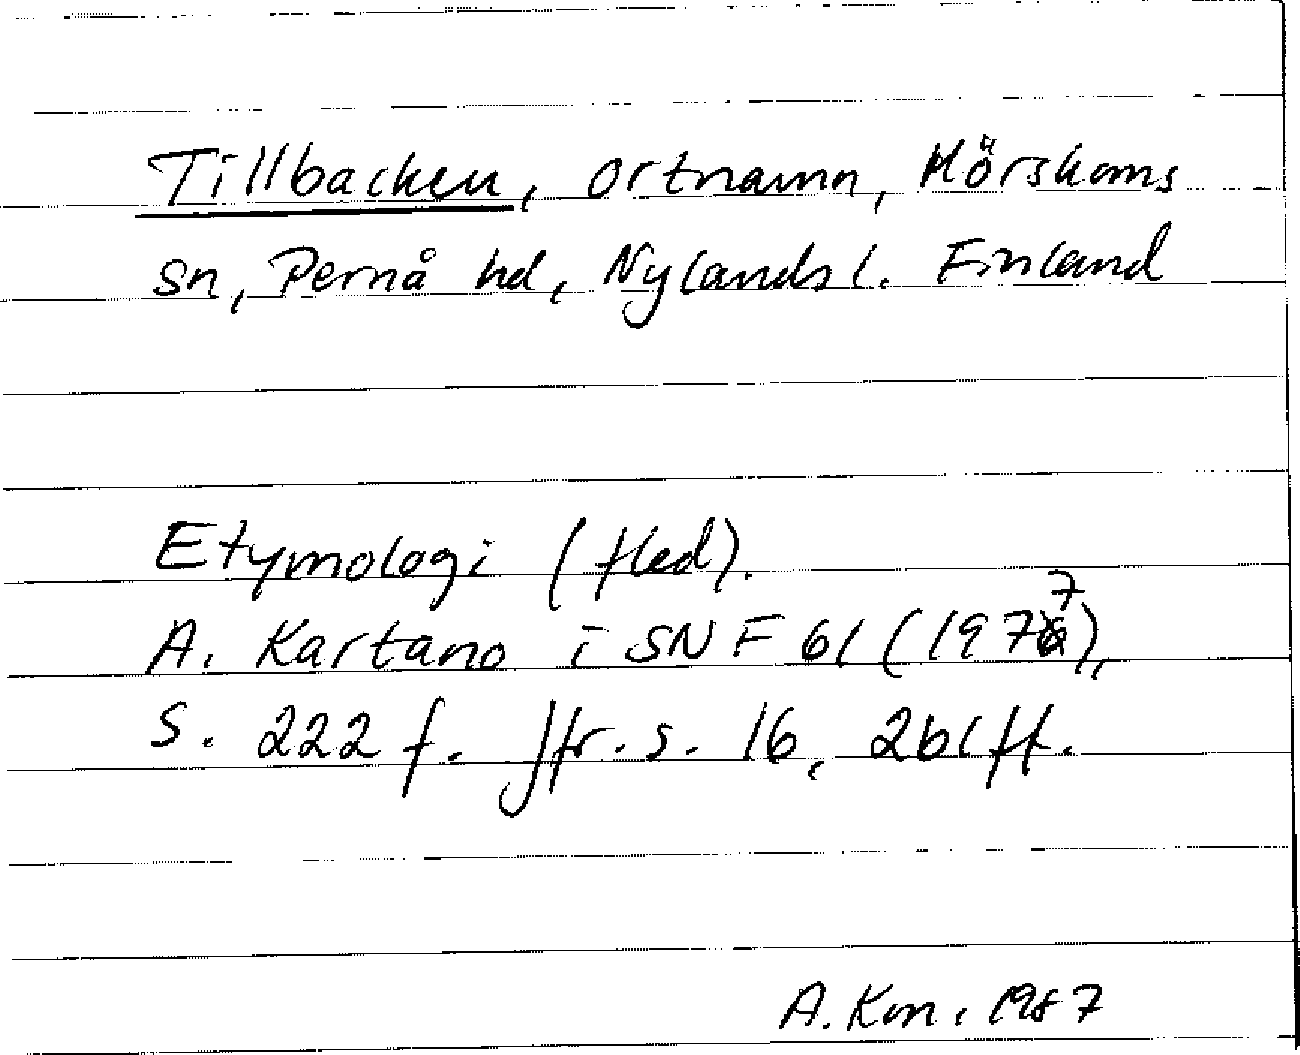 Tillbacken, ortnamn, Mörskoms
sn, Pernå hd, Nylands l. Finland
Etymologi (fled).
A. Kartano i SNF 61 (1977),
s. 222 f. Jfr. s. 16, 261 ff.
A. Km. 1987